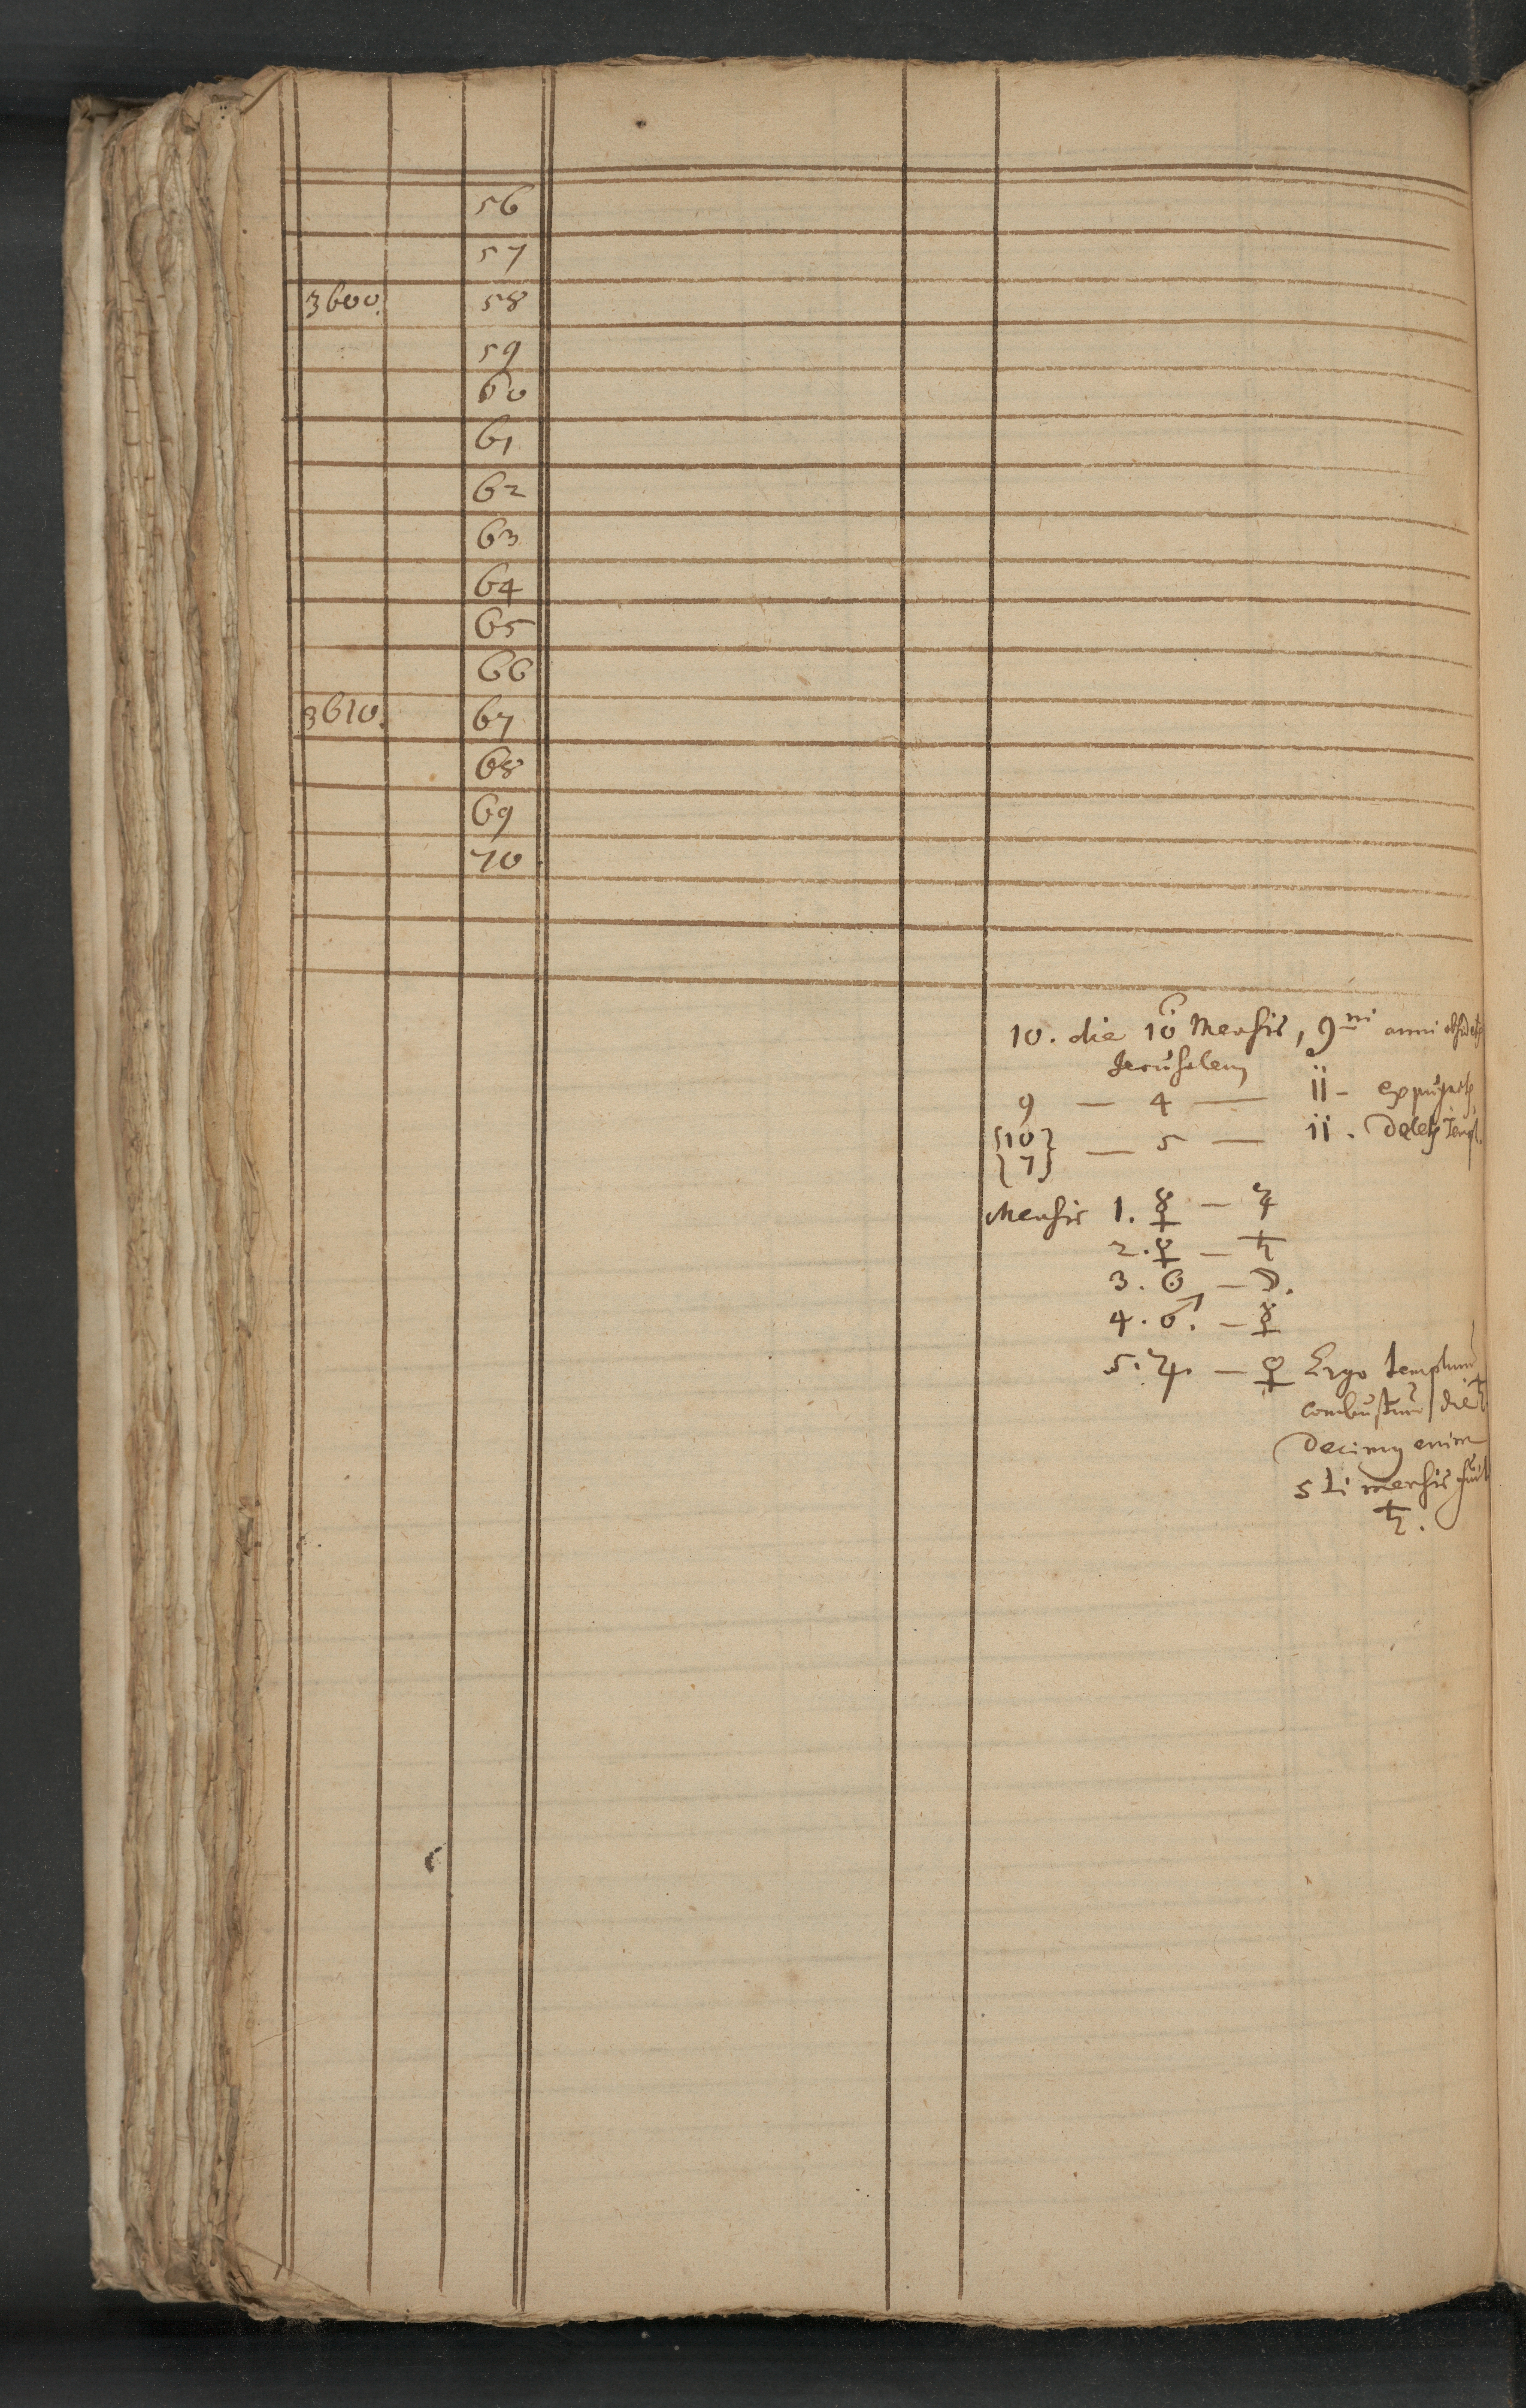 56
57
3600. 58
59
60
61
62
63
64
65
66
3610. 67
68
69
70
10. die 10 Mensis, 9ni anni
Jerusalem
9 — 4 — ii –
{10} — 5 — ii.
{7}
Mensis 1. ☿ — ♃
2. ♀ — ♄
3. ☉ — ☽.
4. ♂. — ☿
5. ♃. — ♀ Ergo templum
combustum die ♄
Decimus enim
5ti mensis fuit
♄.